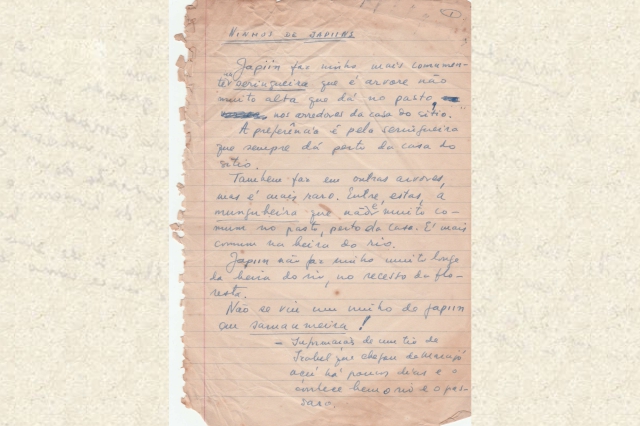 1
NINHOS DE JAPIINS
Japiin faz ninho mais comumen-
te seringueira que é arvore não
muito alta que dá no pasto
nos arredores da casa do sitio.
A preferência é pela seringueira
que sempre dá perto da casa do
sitio.
Tambem faz em outras arvores,
mas é mais raro. Entre, estas, a
mungubeira que não é muito co-
mum no pasto, perto da casa. É mais
comum na beira do rio.
Japiin não faz ninho muito longe
da beira do rio, no recesso da flo-
resta.
Não se viu um ninho de japiin
em samaumeira!
— Informaçãs de um tio de
Isabel que chegou de Marajó
aqui há poucos dias e o
conhece bem o rio e o pas-
saro.